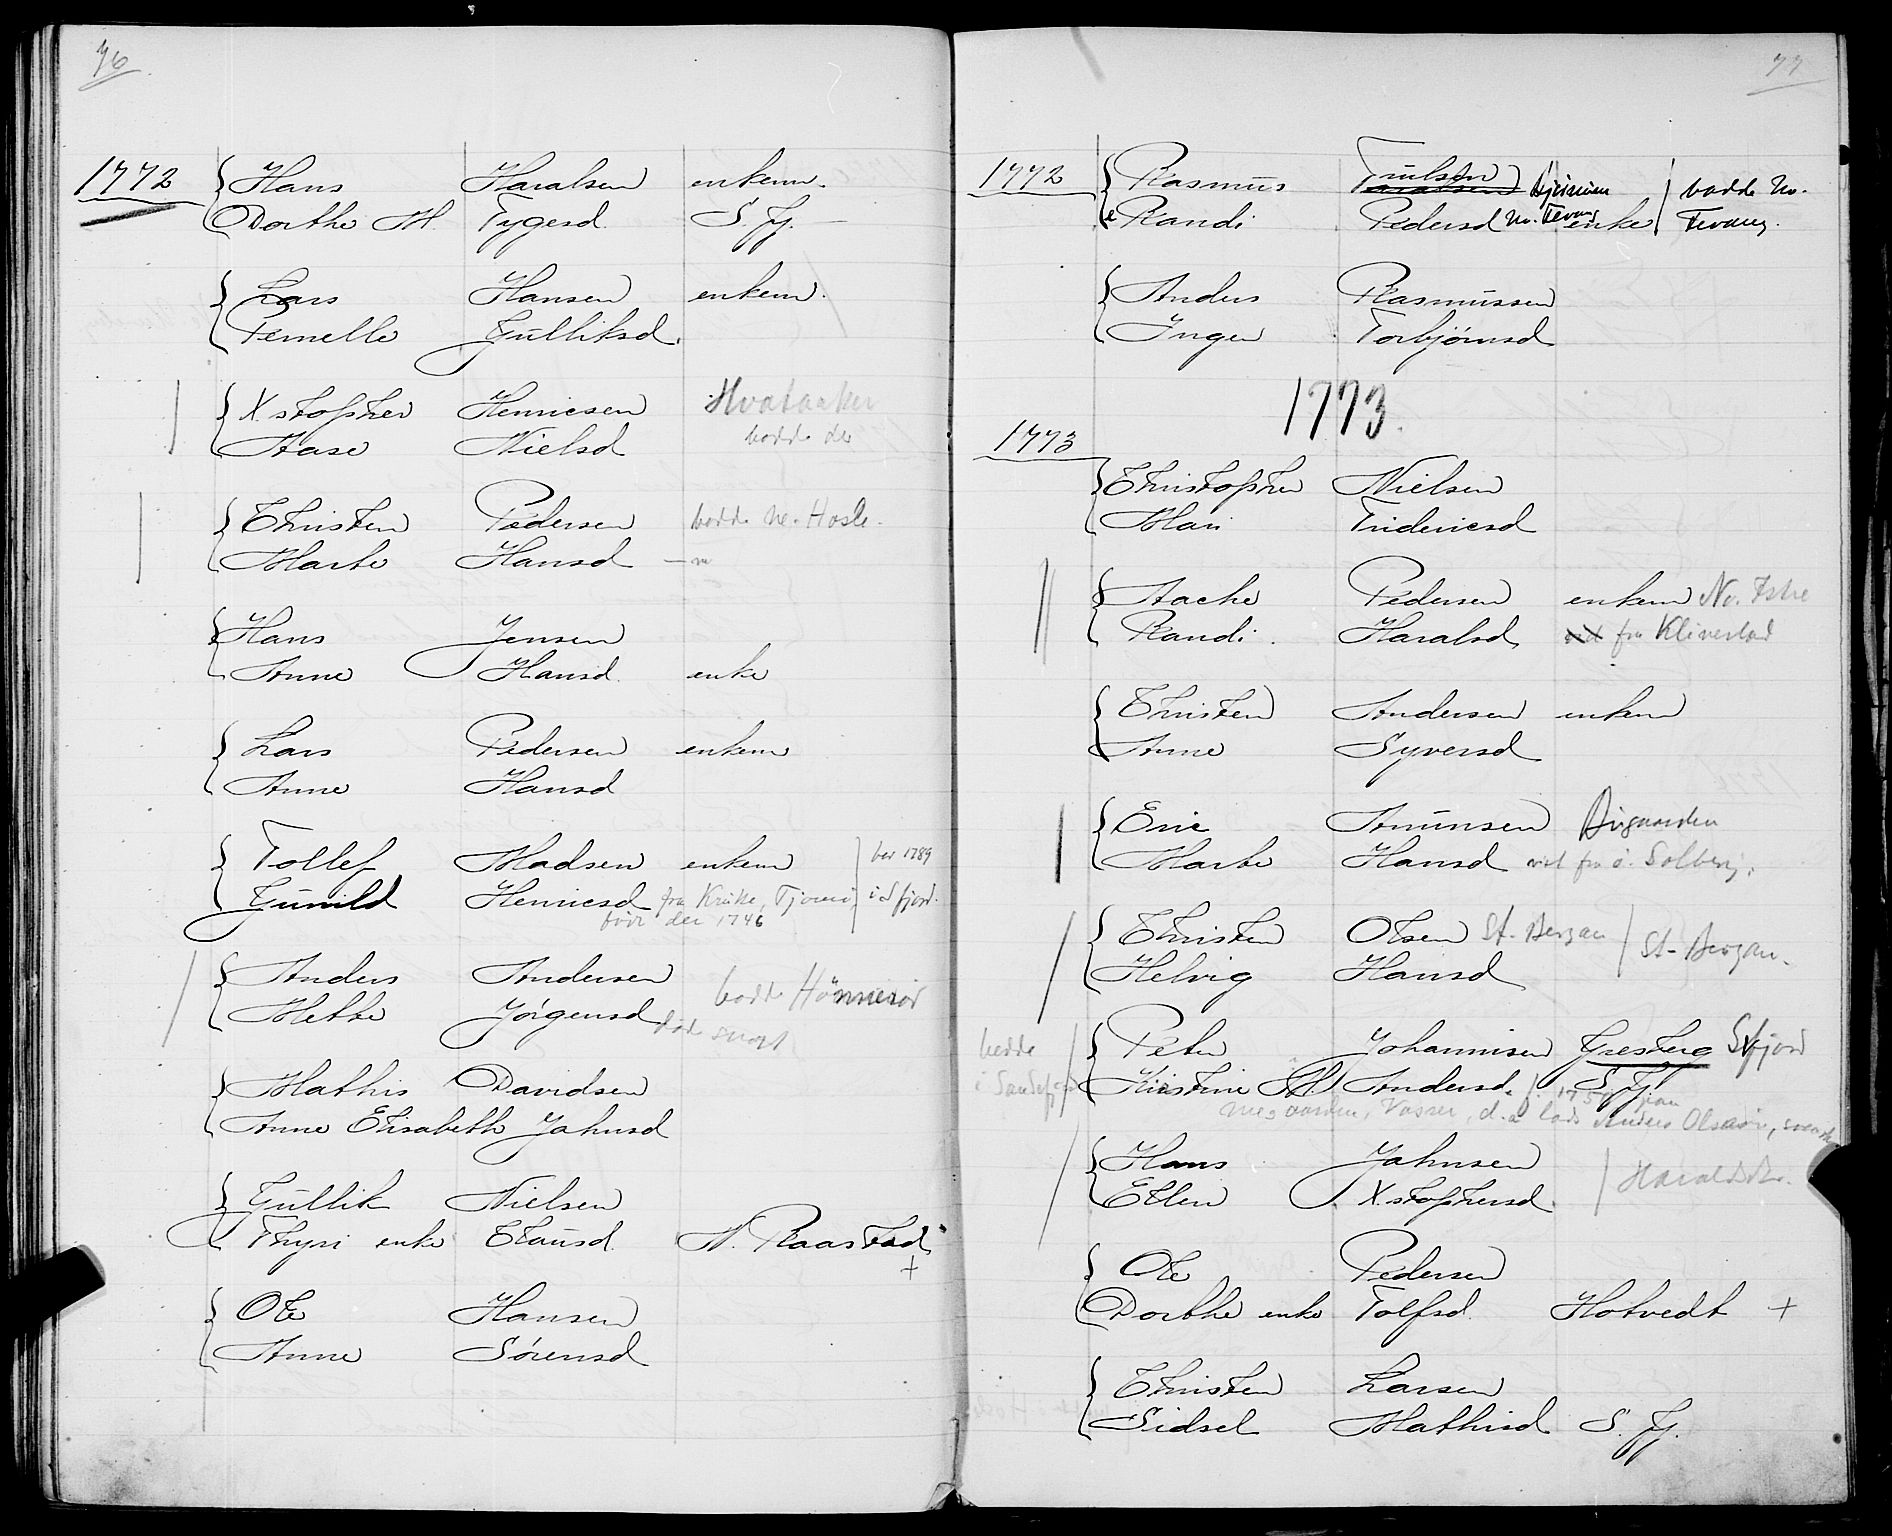 76
1772 Hans Haralsen enkem.
Dorthe M. Tygesd. S. Fj.
Lars Hansen enkem.
Pernelle Gulliksd.
Xstopher Henricsen Hvataaker
Aase Nielsd bodde der
Christen Pedersen bodde ne. Hasle.
Marte Hansd
Hans Jensen
Anne Hansd. enke
Lars Pedersen enkem
Anne Hansd
Tollef Madsen enkem bor 1789
Gunild Henricsd fra Kruke, Tjømø, i S fjord.
født der 1746
Anders Andersen
Mette Jørgensd bodde Hønnerød
døde snart
Mathis Davidsen
Anne Elisabeth Jahnsd
Gullik Nielsen
Thyri enke Clausd. N. Raastad
+
Ole Hansen
Anne Sørensd
77
1772 Rasmus Trulsen bodde no.
Randi Pedersd no. Tevang enke Tevang.
Anders Rasmussen
Inger Torbjørnsd
1773.
1773
Christopher Nielsen
Mari Fridericsd
Aache Pedersen enkem No. Istre
Randi Haralsd fra Klinestad
Christen Andersen enkem
Anne Syversd
Eric Amunsen
Marte Hansd vist fra ø. Solberg.
Christen Olsen St. Bergan St. Bergan.
Helvig Hansd
Peter Johannisen Gresberg Sfjord
bodde i Sandefjord Kirstine M. Andersd. S. Fj.
Vasser, d. a. Anders Olsen, svensk
Hans Jahnsen
Ellen Xstophersd.
Ole Pedersen
Dorthe enke Tolfsd. Hotvedt +
Christen Larsen
Sidsel Mathisd S. Fj.